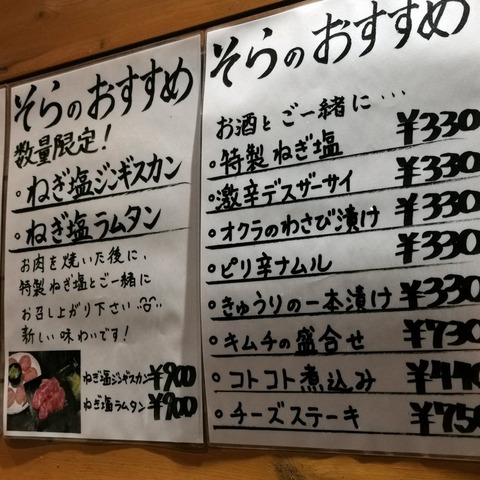 そらのおすすめ
数量限定!
ねぎ塩ジンギスカン
ねぎ塩ラムタン
お肉を焼いた後に、
特製ねぎ塩とご一緒に
お召し上がり下さい
新しい味わいです!
ねぎ塩ジンギスカン ¥900
ねぎ塩ラムタン ¥900
そらのおすすめ
お酒とご一緒に・・・
特製ねぎ塩 ¥330
激辛デスザーサイ ¥330
オクラのわさび漬け ¥330
ピリ辛ナムル ¥330
きゅうりの一本漬け ¥330
キムチの盛合せ ¥730
コトコト煮込み ¥440
チーズステーキ ¥750